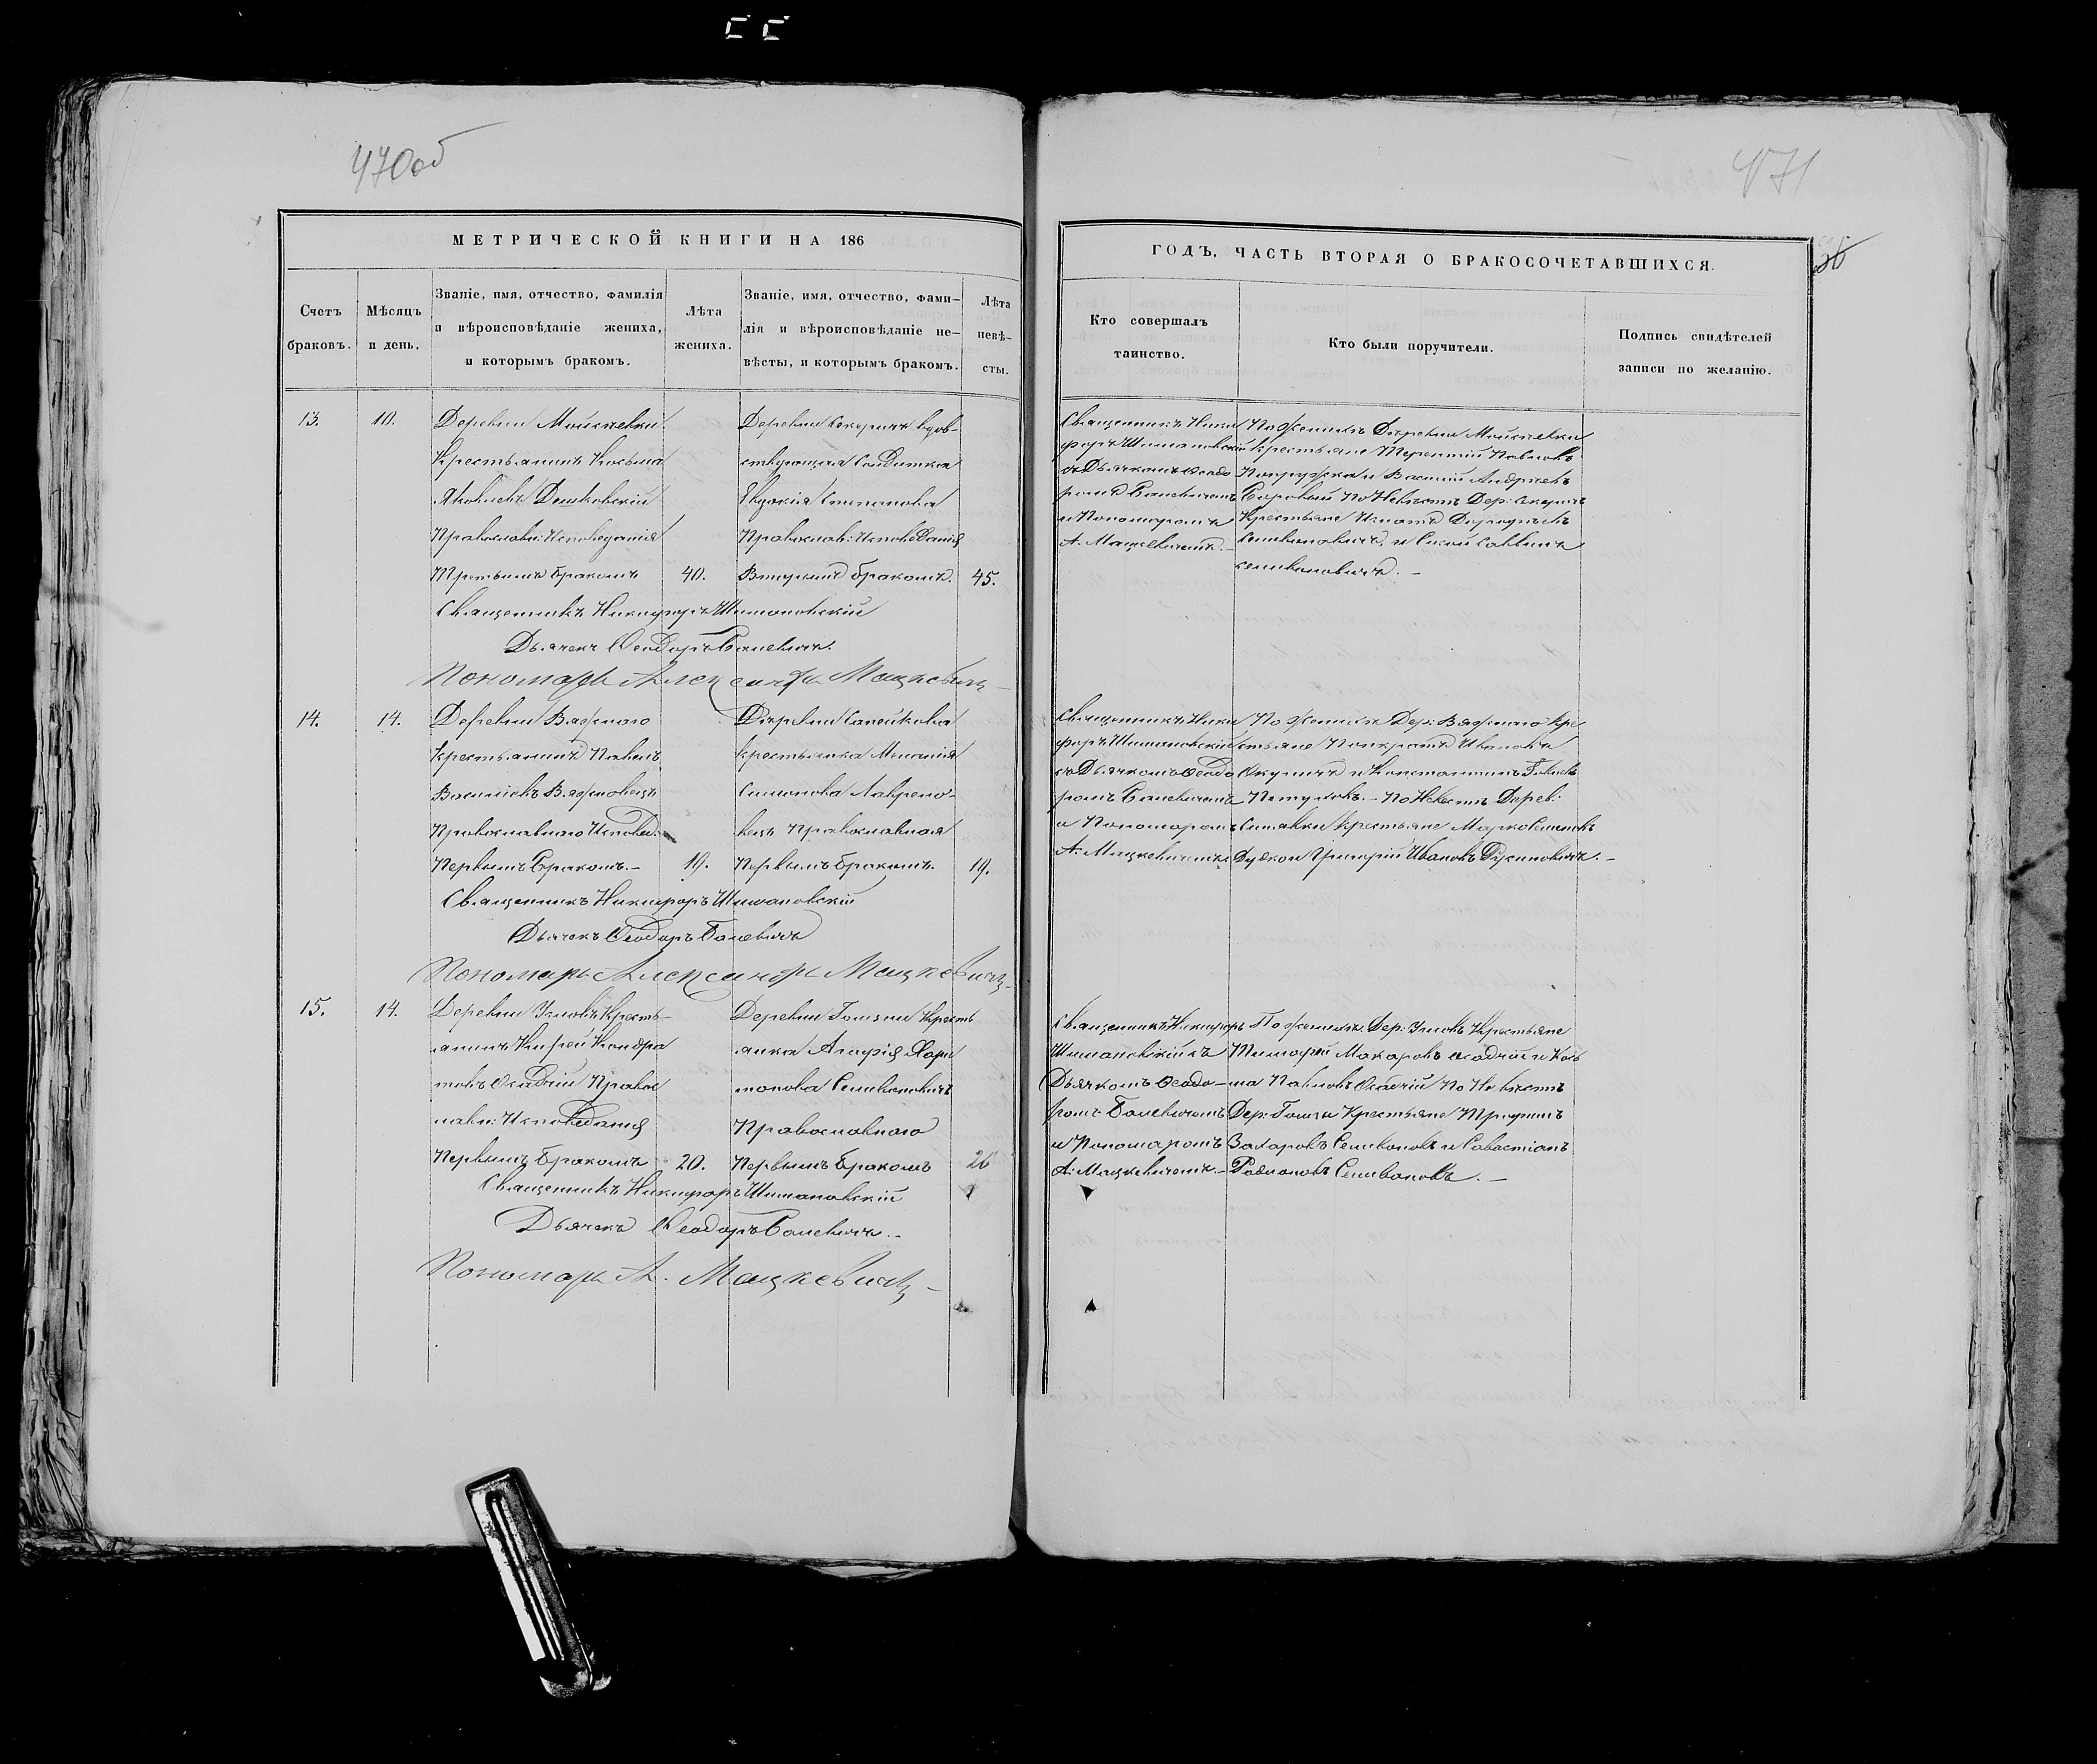 470об
471
МЕТРИЧЕСКОЙ КНИГИ НА 186
Счетъ браковъ.
Мѣсяцъ и день.
Званіе, имя, отчество, фамилія
и вѣроисповѣданіе жениха,
и которымъ бракомъ.
Лѣта жениха.
Званіе, имя, отчество, фами-
лія и вѣроисповѣданіе не-
вѣсты, и которымъ бракомъ.
Лѣта невѣ-
сты.
13.
10.
Деревни
Крестьянинъ Козьма
Яковлевъ
Православн: Исповеданія
Третьимъ бракомъ
40.
Деревни Секеричъ вдов-
ствующая Солдатка
Евдокія Степанова
Православ: Исповеданія
Вторымъ бракомъ.
45.
Священникъ Никифоръ Шимановскій
Дьячекъ Ѳеодоръ Балевичъ.
Пономарь Александръ Мацкевичъ
14.
14.
Деревни Вяжного
Крестьянинъ Павелъ
Василіевъ Вяжновецъ
Православнаго Исповед.
Первымъ Бракомъ.-
19.
Деревни
Крестьянка Меланія
Симонова Лаврено-
вецъ Православная
Первымъ бракомъ.
19.
Священникъ Никифоръ Шимановскій
Дьячекъ Ѳеодоръ Балевичъ
Пономарь Александръ Мацкевичъ
15.
14.
Деревни Угловъ Кресть-
янинъ Кирей Кондра
товъ Осадчій Правос
лавн: Исповеданія
Первымъ Бракомъ
20.
Деревни Гошзы Кресть
янка Агафія Хари
тонова Селивоновичъ
Православнаго
Первымъ бракомъ
26
Священникъ Никифоръ Шимановскій
Дьячекъ Ѳеодоръ Балевичъ.-
Пономарь А. Мацкевичъ
ГОДЪ, ЧАСТЬ ВТОРАЯ О БРАКОСОЧЕТАВШИХСЯ.
Кто совершалъ
таинство.
Кто были поручители.
Подпись свидѣтелей
записи по желанію.
Священникъ Ники
форъ Шимановскій
съ Дьячкомъ Ѳеодо
ромъ Балевичемъ
и Пономаромъ
А. Мацкевичемъ.
По женихѣ Деревни
крестьяне Терентій Павловъ
и Василій Андреевъ
Боровый По Невѣстѣ Дер: Секеричъ
Крестьяне Игнатъ
Селивоновичъ, и
селивоновичъ. -
Священникъ Ники
форъ Шимановскій
съ Дьячкомъ Ѳеодо
ромъ Балевичемъ
и Пономаромъ
А. Мацкевичемъ
По женихѣ Дер: Вяжного кре
стьяне Панкратъ Ивановъ
Окуличъ и Константинъ
По Невестѣ Дерев:
крестьяне Марко Семеновъ
Григорій Ивановъ
Священникъ Никифоръ
Шимановскій съ
Дьячкомъ Ѳеодо-
ромъ Балевичемъ
и Пономаромъ
А. Мацкевичемъ.-
По женихѣ Дер: Угловъ Крестьяне
Тимофей Макаровъ Осадчій и Кось
ма Павловъ Осадчій По Невѣстѣ
Дер: Гошзы Крестьяне Трофимъ
Захаровъ Селивоновъ и Савастіанъ
Родіоновъ Селивоновъ. -